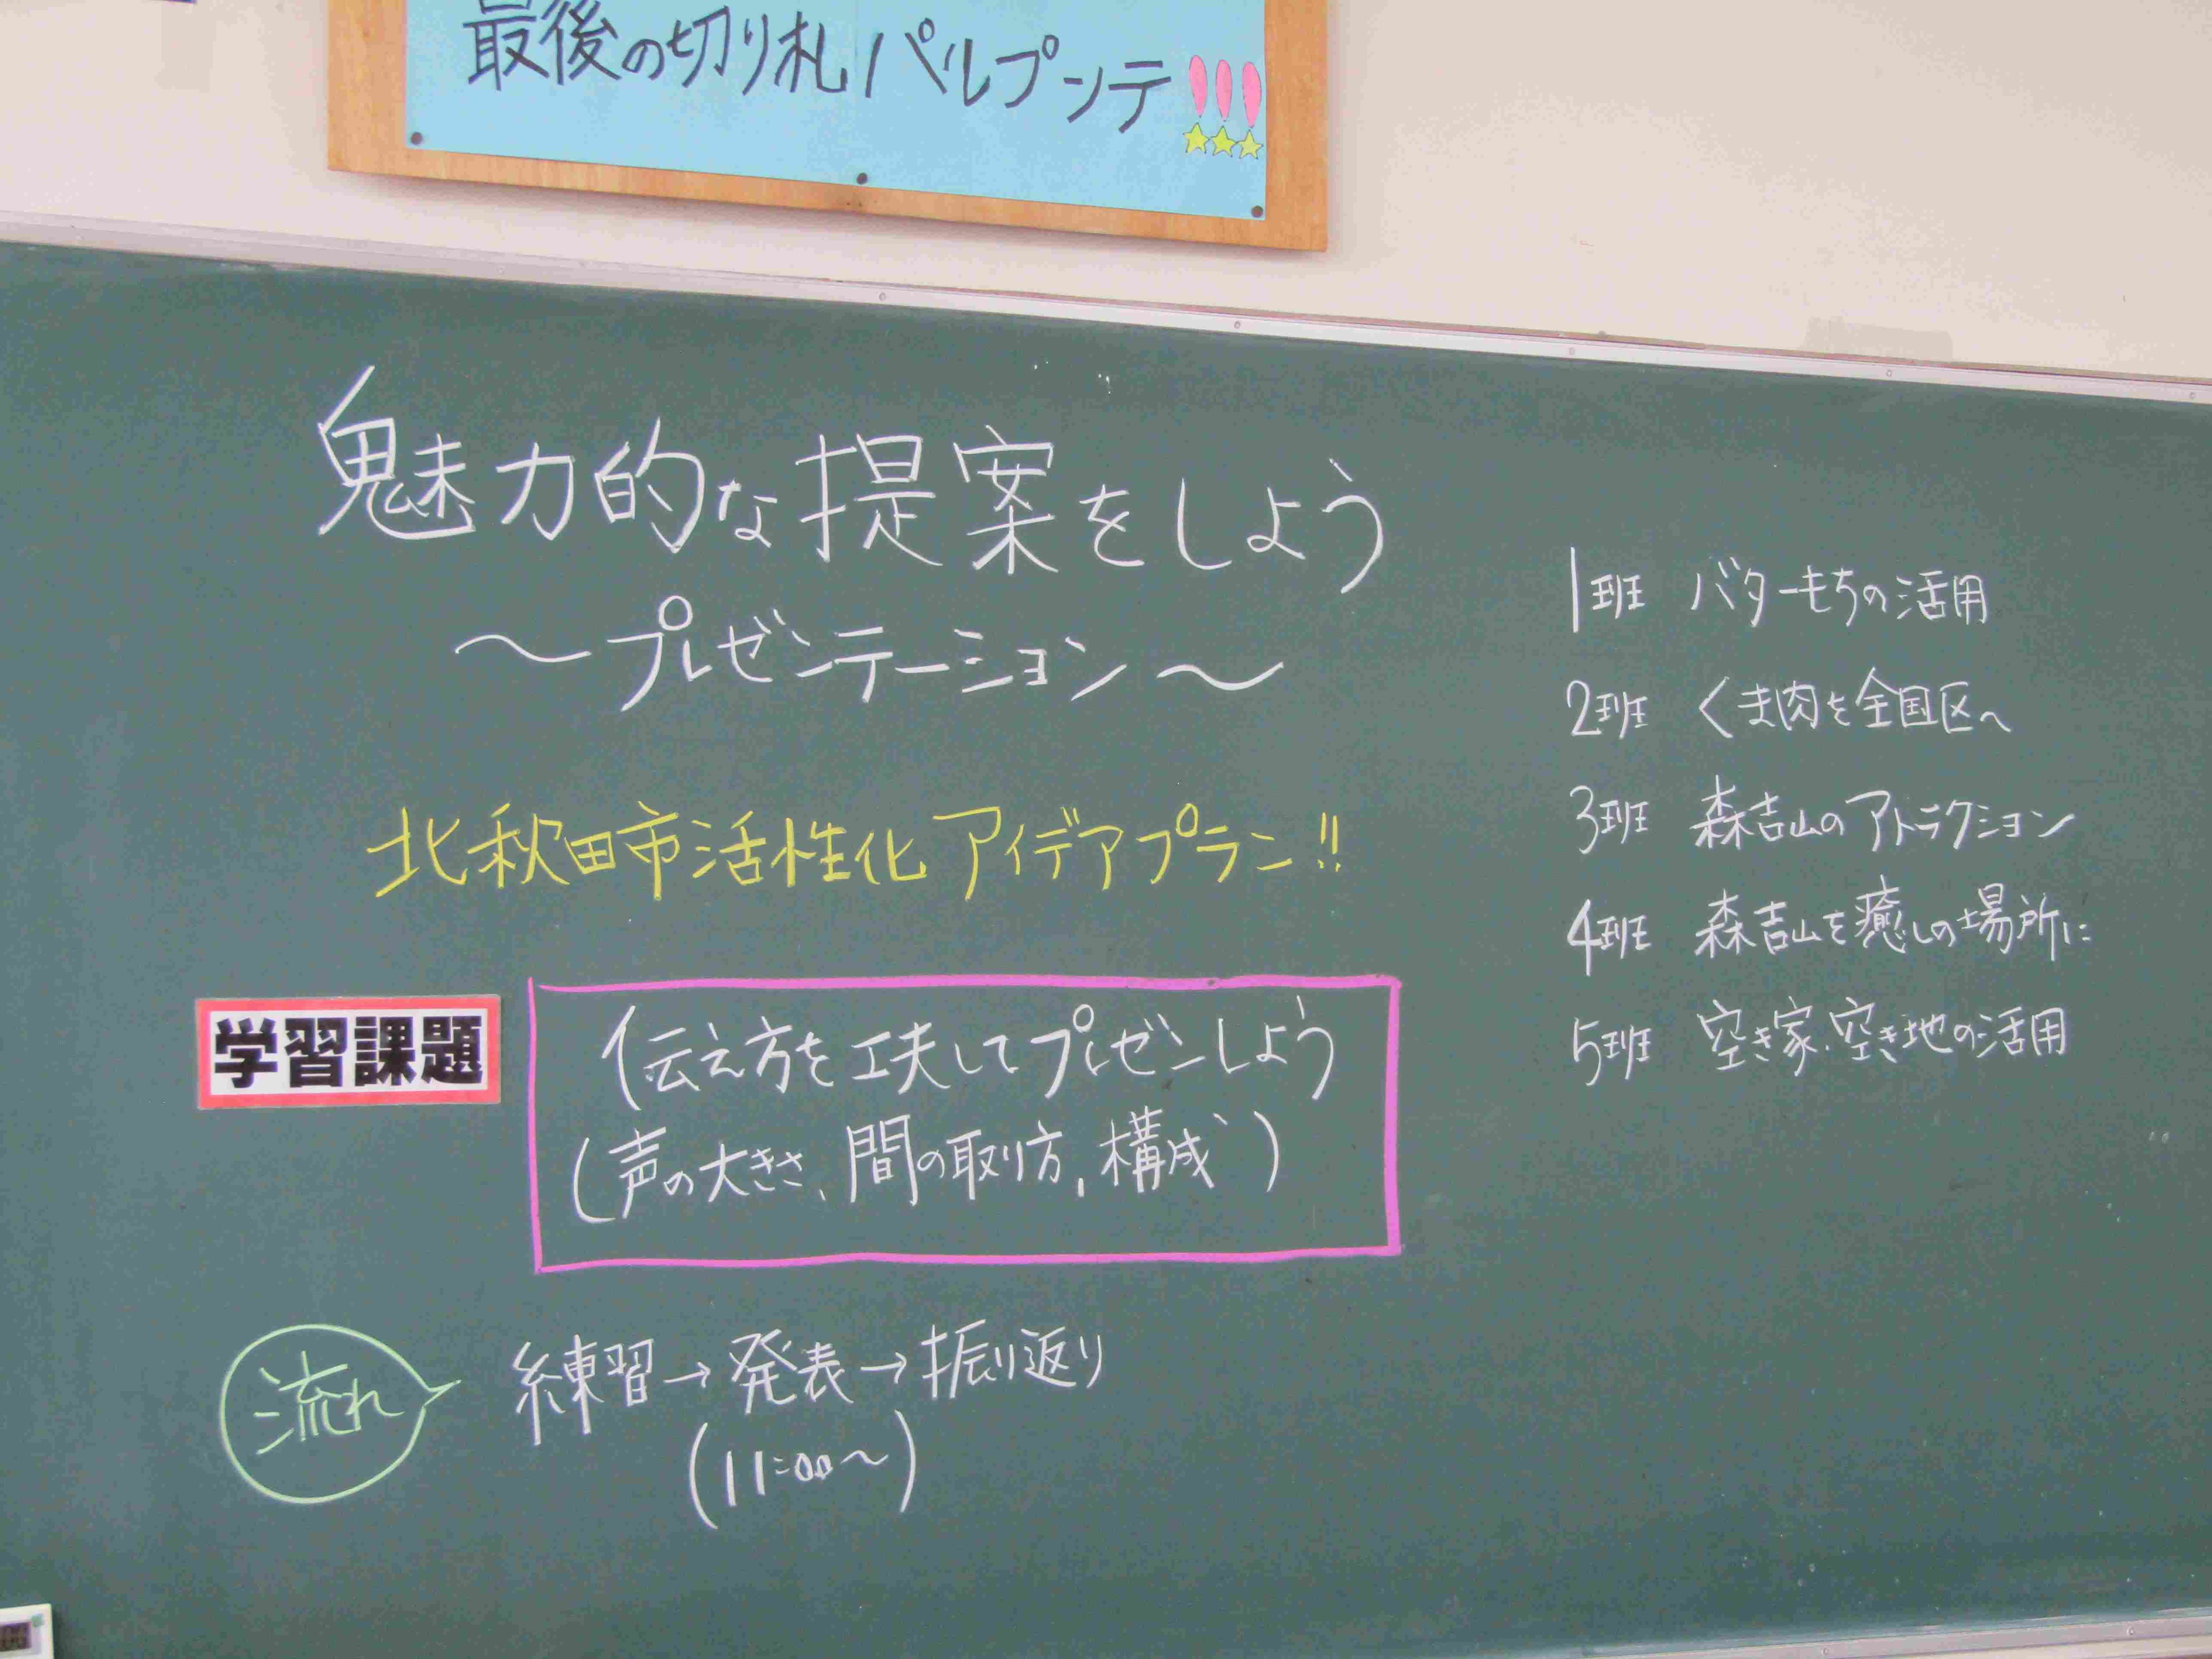 最後の切り札パルプンテ!!!
魅力的な提案をしよう
～プレゼンテーション～
北秋田市活性化アイデアプラン!!
学習課題
伝え方を工夫してプレゼンしよう
(声の大きさ、間の取り方、構成)
流れ
練習→発表→振り返り
(11:00～)
1班 バターもちの活用
2班 くま肉を全国区へ
3班 森吉山のアトラクション
4班 森吉山を癒しの場所に
5班 空き家、空き地の活用